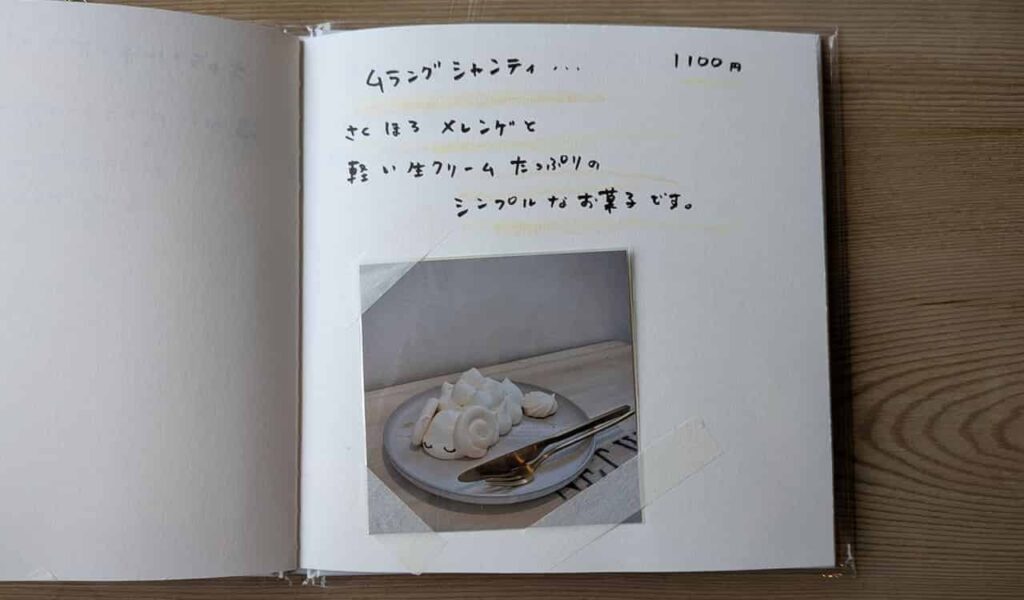 ムラングシャンティ... 1100円
さくほろ メレンゲと
軽い生クリームたっぷりの
シンプルなお菓子です。